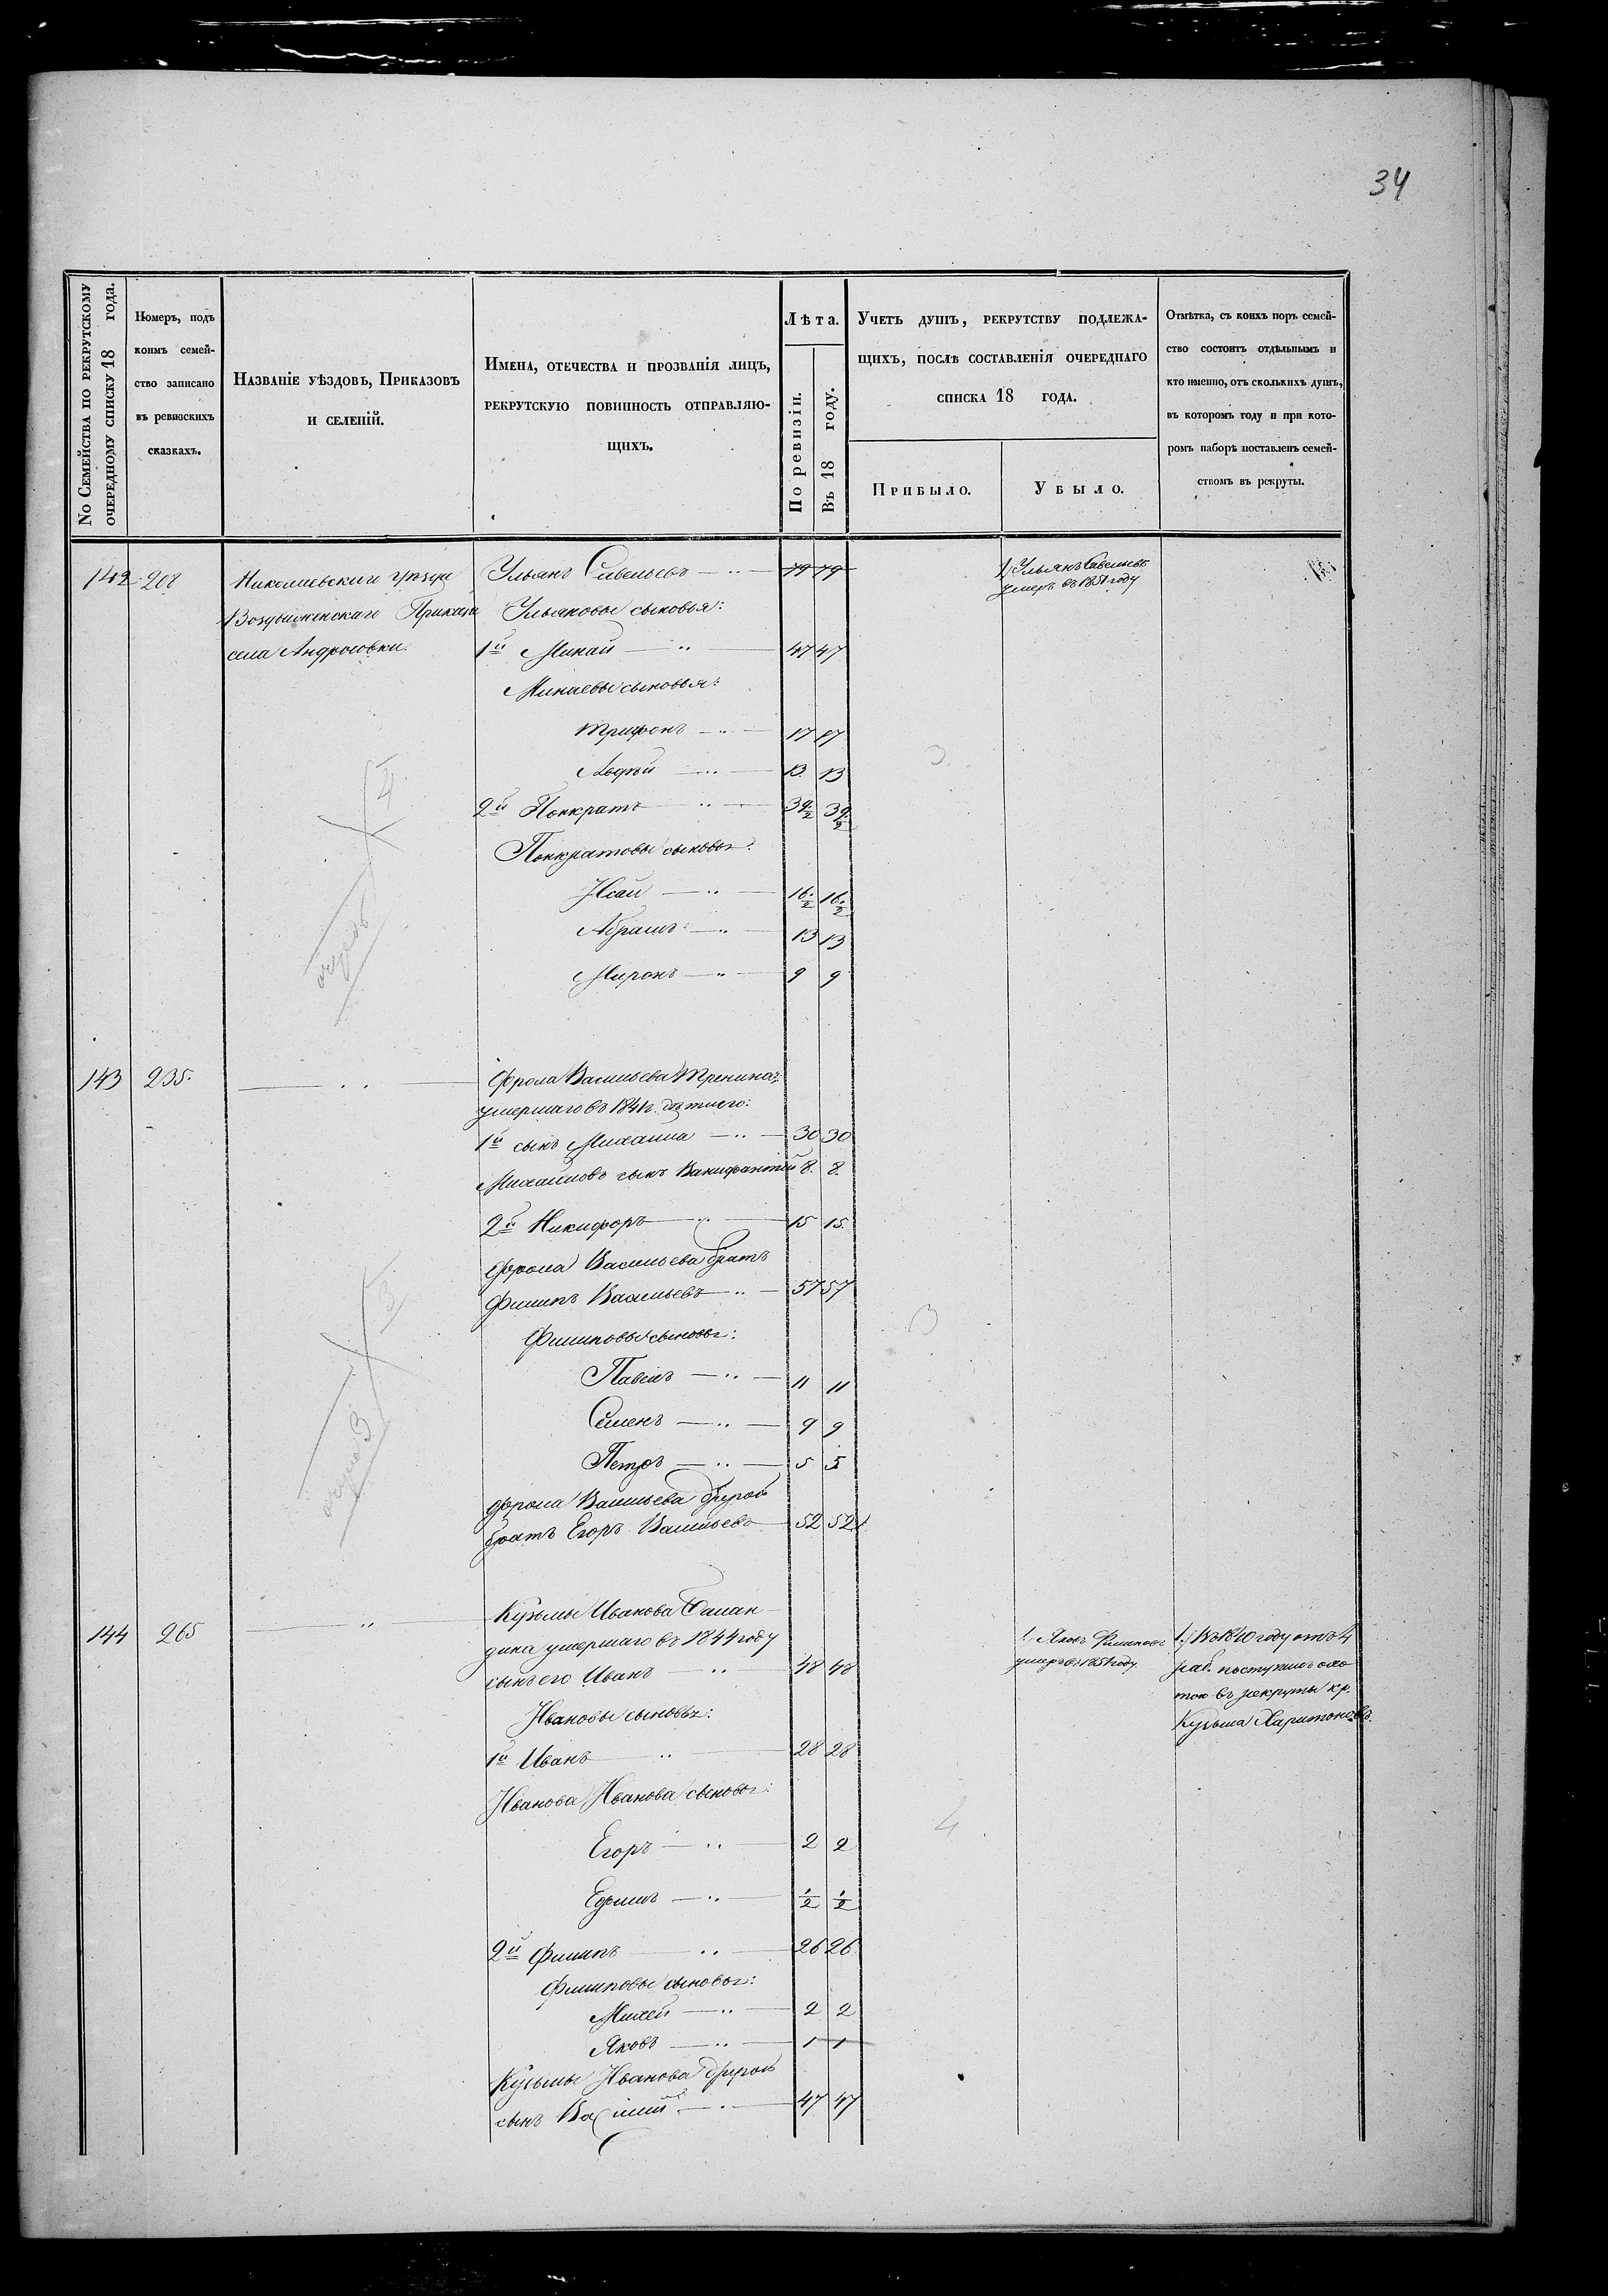 34
№ Семейства по рекрутскому
очередному списку 18 года.
Номеръ, подъ
коимъ семей-
ство записано
въ ревизскихъ
сказкахъ.
Названіе уѣздовъ, Приказовъ
и селеній.
Имена, отечества и прозванія лицъ,
рекрутскую повинность отправляю-
щихъ.
Лѣта.
По ревизіи.
Въ 18 году.
Учетъ душъ, рекрутству подлежа-
щихъ, послѣ составленія очереднаго
списка 18 года.
Прибыло.
Убыло.
Отмѣтка, съ коихъ поръ семей-
ство состоитъ отдѣльнымъ и
кто именно, отъ сколькихъ душъ,
въ которомъ году и при кото-
ромъ наборѣ поставленъ семей-
ствомъ въ рекруты.
142 208 Николаевскаго уѣзда Ульянъ Савельевъ 79 79 1/ Ульянъ Савельевъ
умеръ въ 1851 году
Воздвиженскаго Приказа Ульяновы сыновья:
села Андросовки. 1й Минай 47 47
Минаевы сыновья:
Трифонъ 17 17
Авдѣй 13 13
4
2й Понкратъ 39½ 39½
Понкратовы сыновья:
Исай 16½ 16½
Абрамъ 13 13
очередь
Миронъ 9 9
143 235. Фрола Васильева Тренина
умершаго въ 1841 г. дѣти его:
1й сынъ Михаила 30 30
Михайловъ сынъ Ванифантій 8. 8.
2й Никифоръ 15 15.
Фрола Васильева братъ
3
Филипъ Васильевъ 57 57
3
Филиповы сыновья:
Павелъ 11 11
Семенъ 9 9
Петръ 5 5
Фрола Васильева другой
братъ Егоръ Васильевъ 52 52
144 265 Кузьмы Иванова
умершаго въ 1844 году 1/ Яковъ Филиповъ 1/ Въ 1840 году отъ 4
сынъ его Иванъ 48 48 умеръ въ 1851 году. раб. поступилъ охо
тою въ рекруты кр.
Ивановы сыновья: Кузьма Харитоновъ.
1й Иванъ 28 28
Иванова Иванова сыновья:
4
Егоръ 2 2
Ефимъ ½ ½
2й Филипъ 26 26
Филиповы сыновья:
Михей 2 2
Яковъ 1 1
Кузьмы Иванова другой
сынъ Василій 47 47